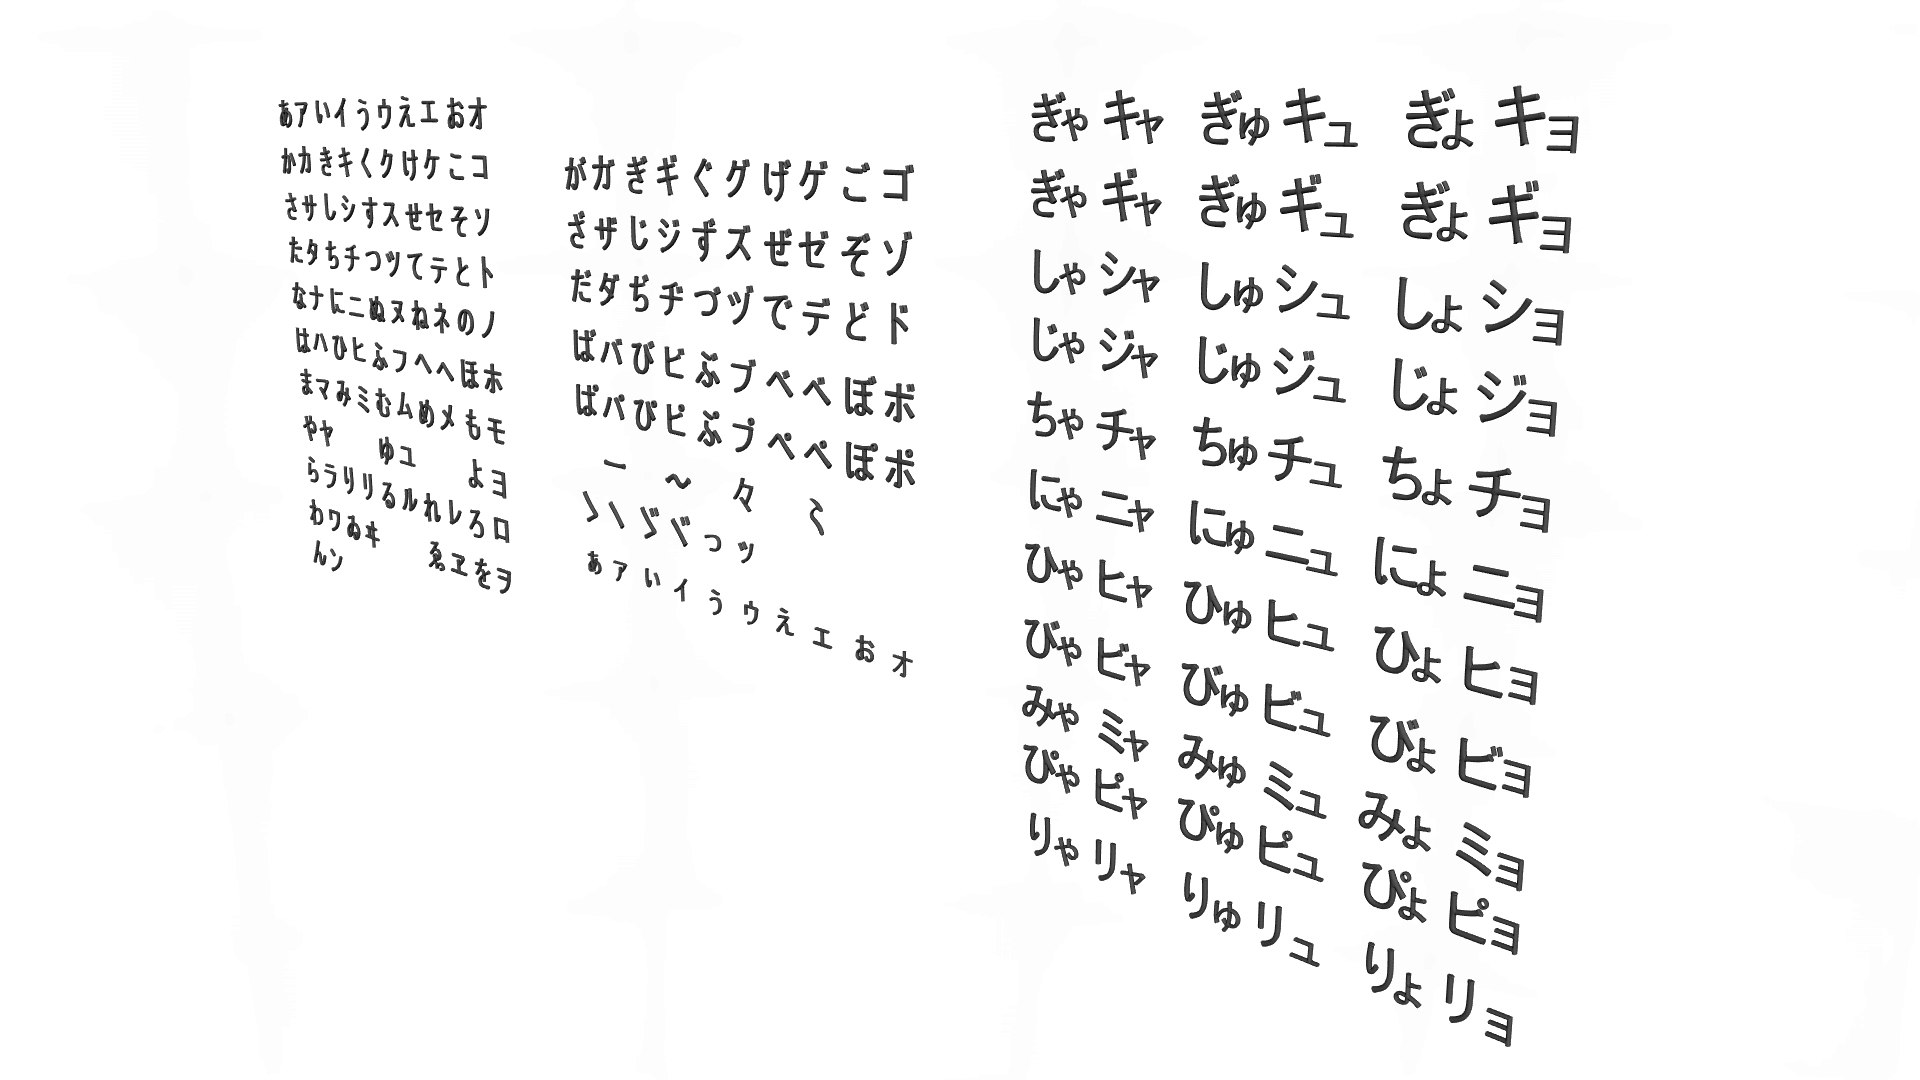 ぁァいイうウえエおオ
かカきキくクけケこコ
さサしシすスせセそソ
たタちチつツてテとト
なナにニぬヌねネのノ
はハひヒふフへヘほホ
まマみミむムめメもモ
やヤ ゆユ よヨ
らラりリるルれレろロ
わワゐヰ ゑヱをヲ
んン
がガぎギぐグげゲごゴ
ざザじジずズぜゼぞゾ
だダぢヂづヅでデどド
ばバびビぶブべベぼボ
ぱパぴピぷプぺペぽポ
ー 〜 々 ゝ
ゝヽゞヾっッ
ぁァぃィぅゥぇェぉォ
ぎゃ キャ ぎゅ キュ ぎょ キョ
ぎゃ ギャ ぎゅ ギュ ぎょ ギョ
しゃ シャ しゅ シュ しょ ショ
じゃ ジャ じゅ ジュ じょ ジョ
ちゃ チャ ちゅ チュ ちょ チョ
にゃ ニャ にゅ ニュ にょ ニョ
ひゃ ヒャ ひゅ ヒュ ひょ ヒョ
びゃ ビャ びゅ ビュ びょ ビョ
みゃ ミャ みゅ ミュ みょ ミョ
ぴゃ ピャ ぴゅ ピュ ぴょ ピョ
りゃ リャ りゅ リュ りょ リョ